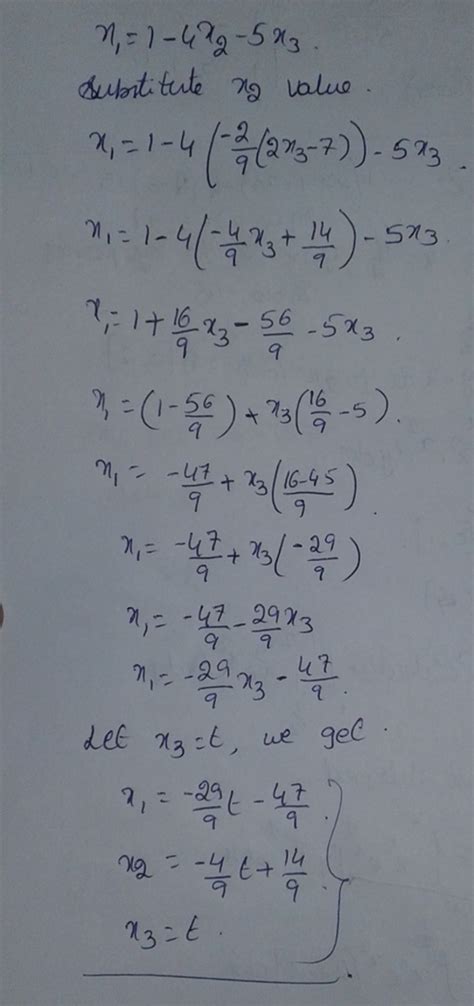 x₁ = 1 - 4x₂ - 5x₃.
Substitute x₂ value.
x₁ = 1 - 4(-2/9(2x₃ - 7)) - 5x₃.
x₁ = 1 - 4(-4/9 x₃ + 14/9) - 5x₃.
x₁ = 1 + 16/9 x₃ - 56/9 - 5x₃.
x₁ = (1 - 56/9) + x₃(16/9 - 5).
x₁ = -47/9 + x₃(16-45/9).
x₁ = -47/9 + x₃(-29/9)
x₁ = -47/9 - 29/9 x₃
x₁ = -29/9 x₃ - 47/9.
Let x₃ = t, we get.
x₁ = -29/9 t - 47/9.
x₂ = -4/9 t + 14/9.
x₃ = t.